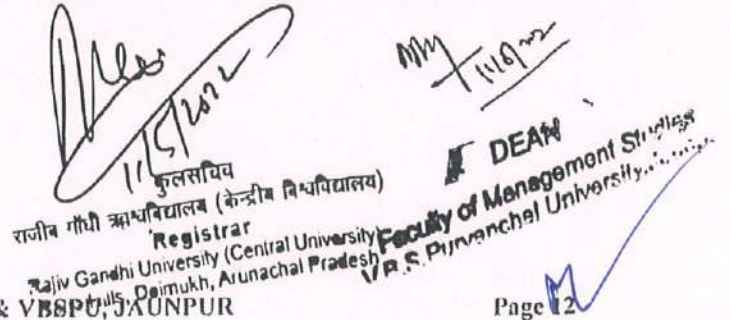 11/5/2022
कुलसचिव
राजीव गाँधी विश्वविद्यालय (केन्द्रीय विश्वविद्यालय)
Registrar
Rajiv Gandhi University (Central University)
Hills, Doimukh, Arunachal Pradesh
DEAN
Faculty of Management Studies
V.B.S. Purvanchal University
& VBSPU, JAUNPUR
Page 12